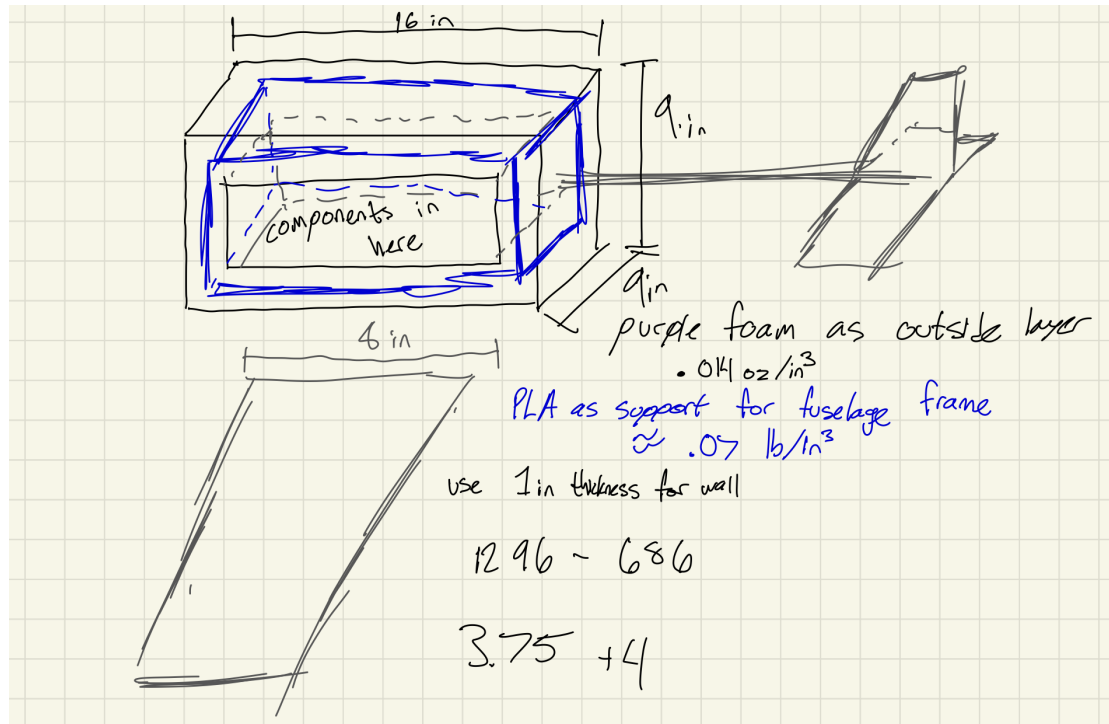 16 in
9 in
components in
here
9in
purple foam as outside layer
.014 oz/in³
8 in
PLA as support for fuselage frame
≈ .07 lb/in³
use 1in thickness for wall
1296 - 686
3.75 +4